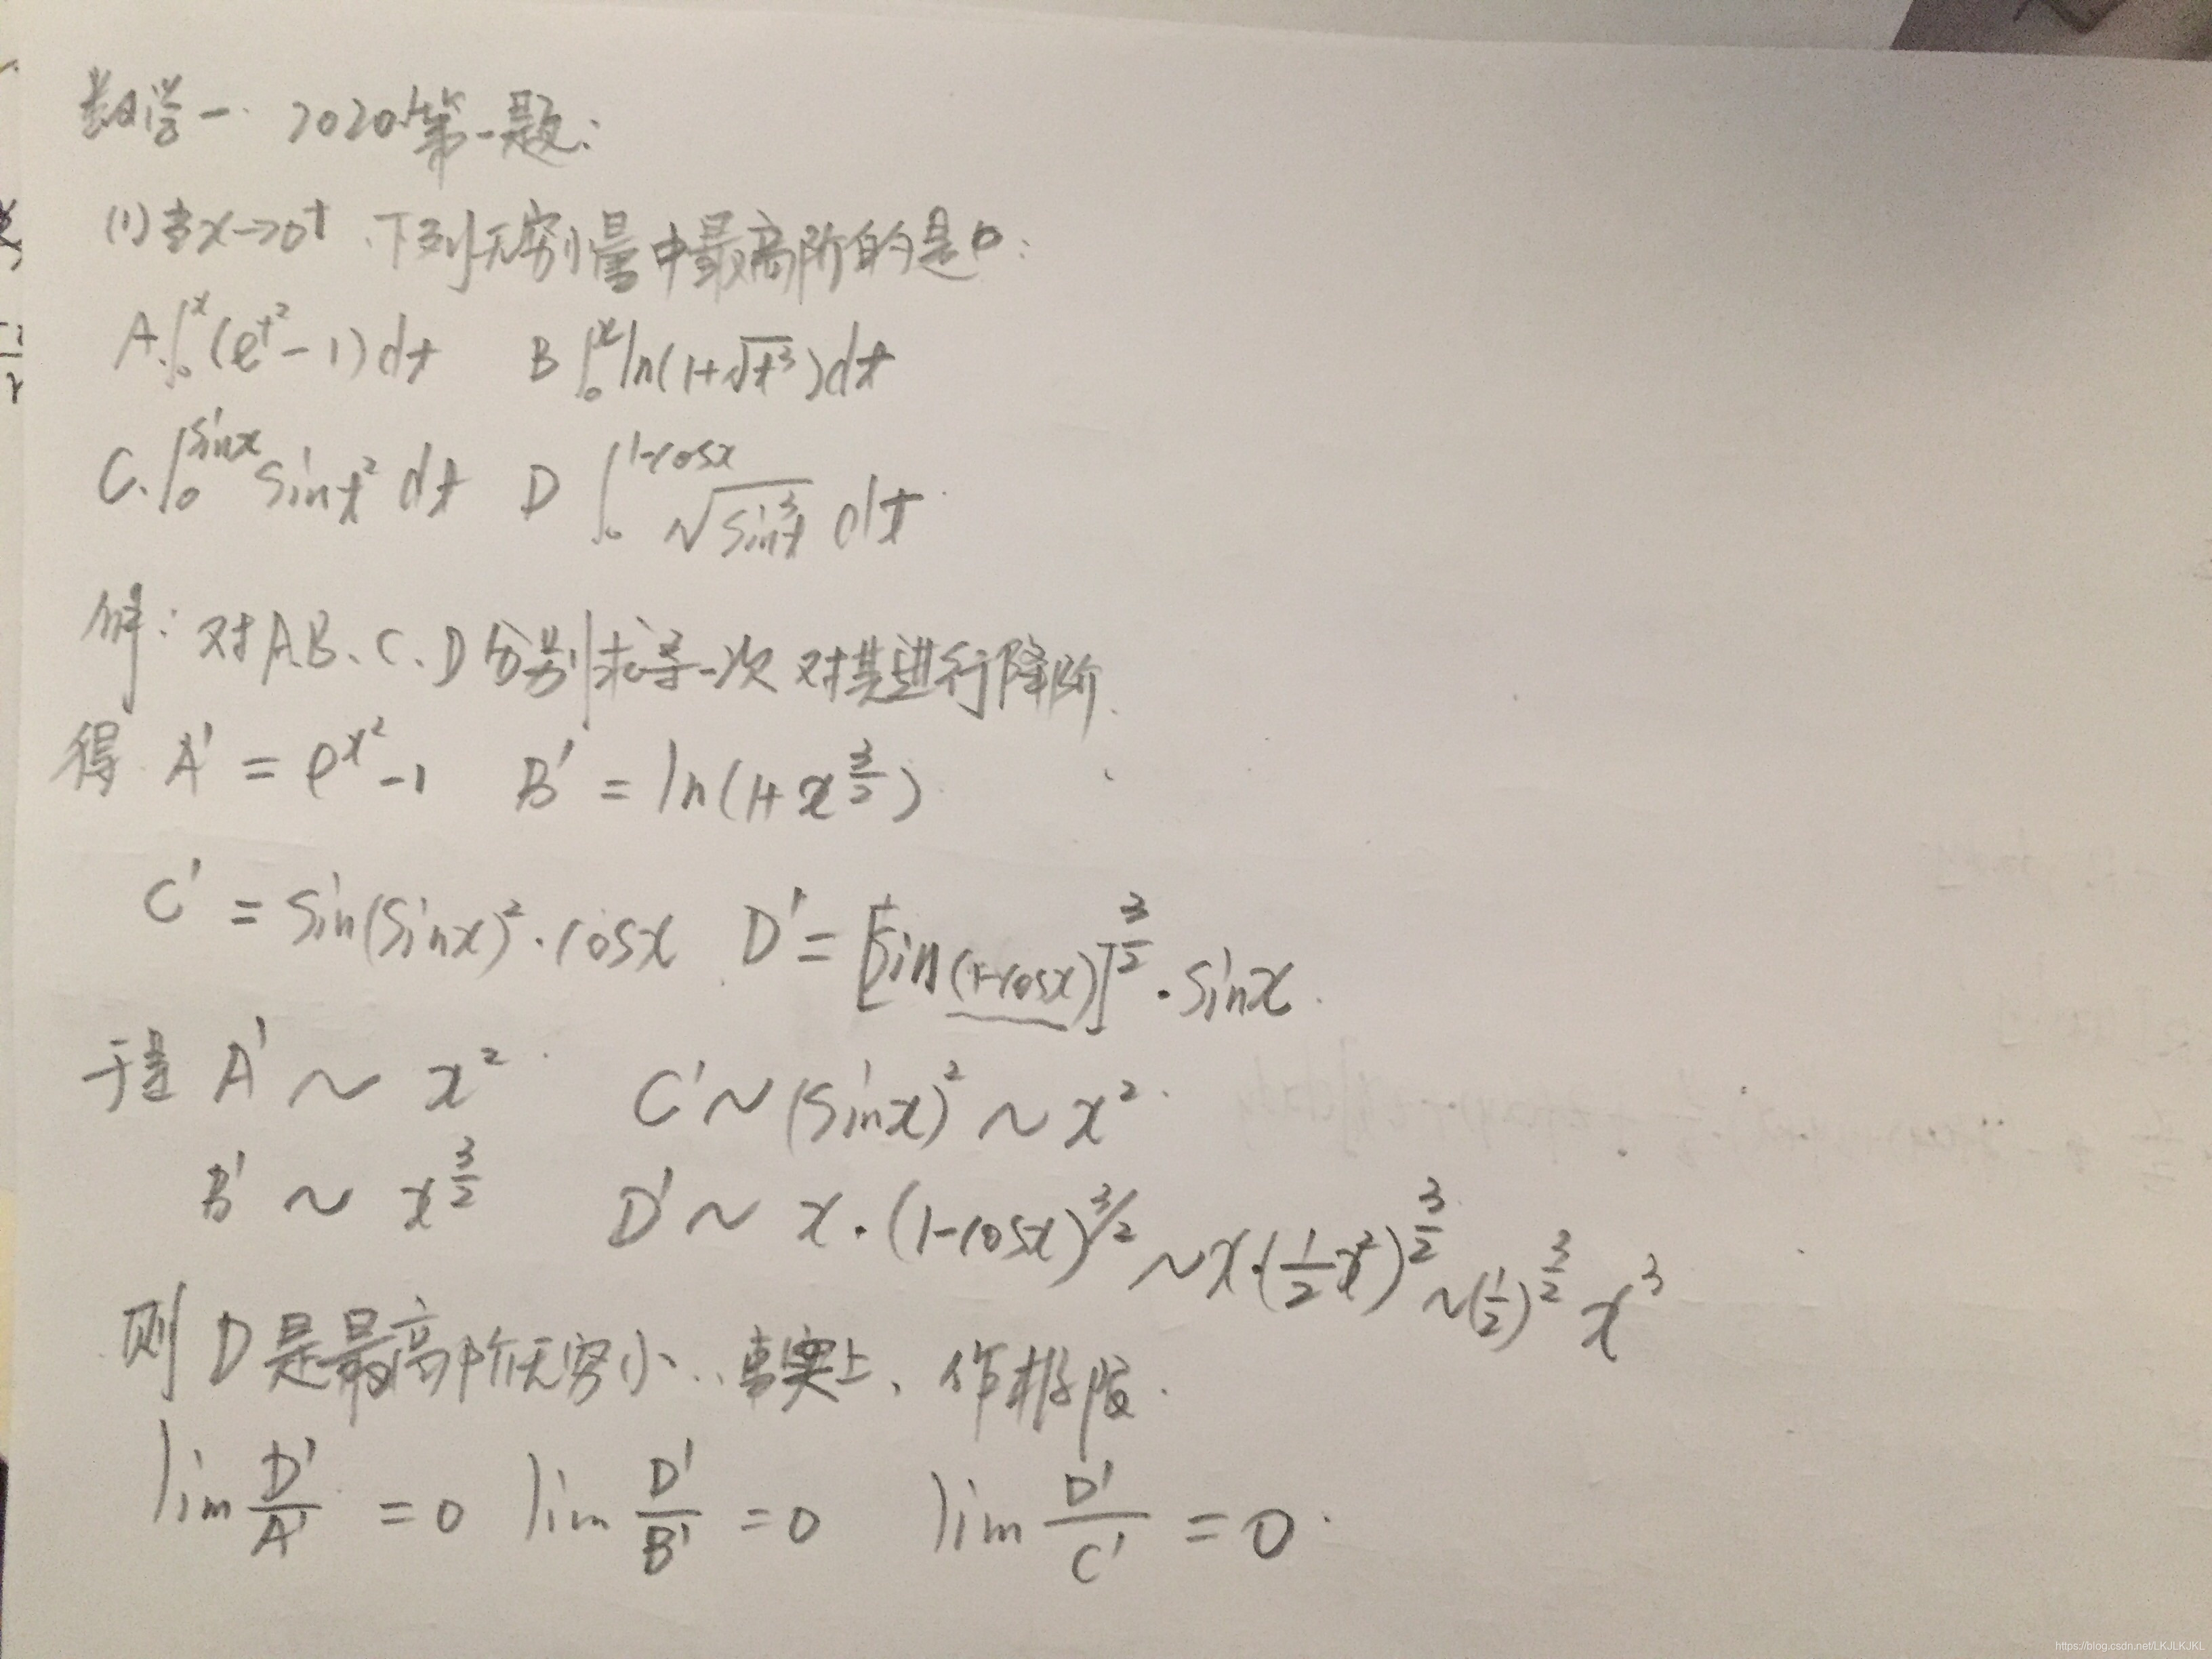 数学一. 2020年第一题:
(1) 当x→0⁺, 下列无穷小量中最高阶的是D:
A. ∫₀ˣ(e^{t²}-1)dt B ∫₀ˣ ln(1+√t³)dt
C. ∫₀^{sinx} sint² dt D ∫₀^{1-cosx} √(sin³t) dt
解: 对A.B、C、D分别求导一次 对其进行降阶.
得 A' = e^{x²}-1 B' = ln(1+x^{3/2})
C' = sin(sinx)²·cosx D' = [sin(1-cosx)]^{3/2}·sinx.
于是 A' ~ x² C' ~ (sinx)² ~ x².
B' ~ x^{3/2} D' ~ x·(1-cosx)^{3/2} ~ x·(1/2 x²)^{3/2} ~ (1/2)^{3/2} x³
则 D是最高阶无穷小.. 事实上、作极限.
lim D'/A' = 0 lim D'/B' = 0 lim D'/C' = 0.
https://blog.csdn.net/LKJLKJKL